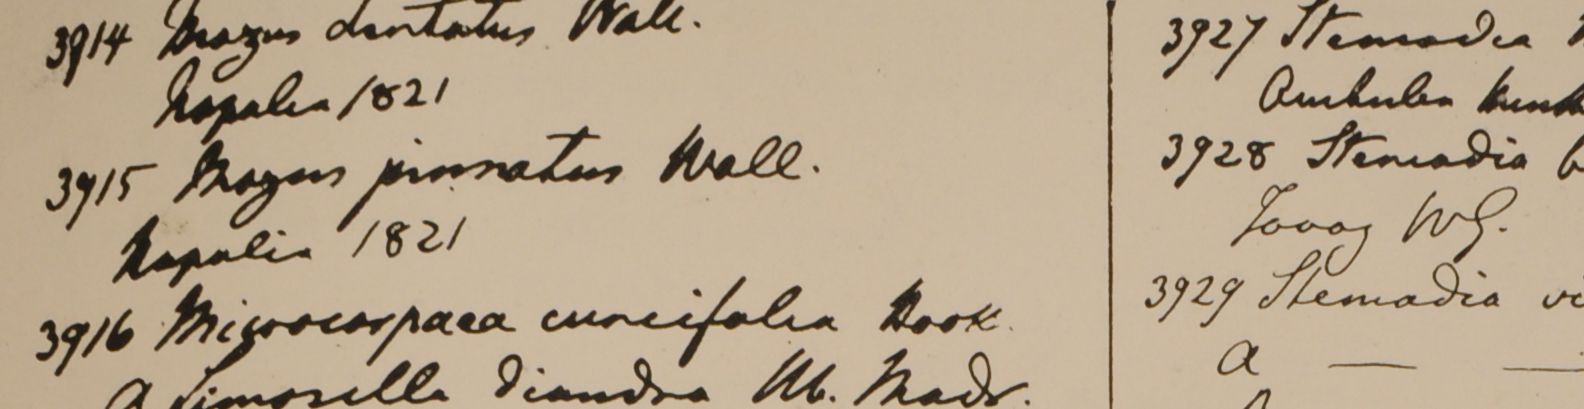 3914 Mazus dentatus Wall.
Napalia 1821
3915 Mazus pinnatus Wall.
Napalia 1821
3916 Microcarpaea cuneifolia Hook
a Limosella diandra Hb. Madr.
3927 Stemodia
Ambulea
3928 Stemodia
Tavoy WG.
3929 Stemadia
a —